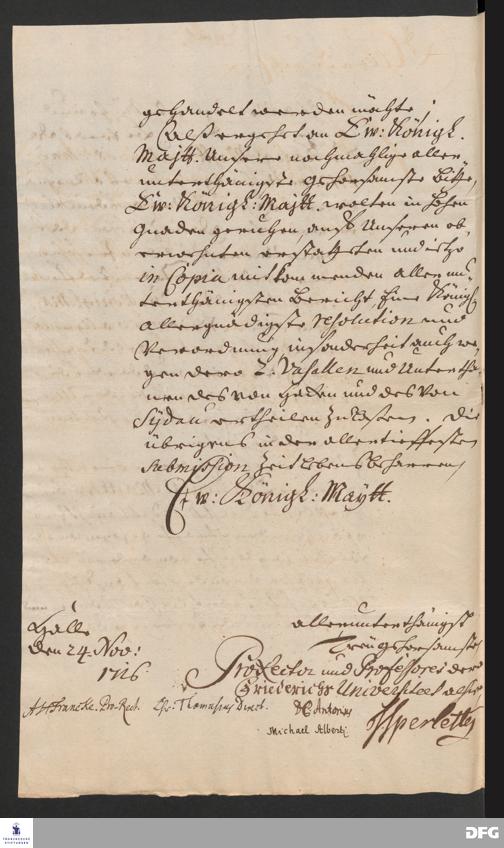 gehandelt werden möchte.
Alß ergehet an Ew: Königl.
Maytt. Unsere nochmahlige aller
unterthänigste gehorsamste Bitte,
Ew: Königl: Maytt. wolten in hohen
Gnaden geruhen, auf Unseren ob-
erwehnten erstatteten und itzo
in Copia mitkommenden allerun-
terthänigsten Bericht, Eine Königl.
allergnädigste resolution und
Verordnung, insonderheit auch we-
gen dero 2. Vasallen und Untertha-
nen des von und des von
Sydau ertheilen zu laßen, Die
übrigens in der allertieffesten
Submission Zeitlebens beharren,
Ew: Königl: Maytt.
Halle
den 24. Nov:
1726
allerunterthänigst
Treu gehorsamste
ProRector und Professores der
Friederichs Universiteet
AHFrancke. Pro-Rect. Chr: Thomasius Direct.
Michael Alberti
JSperlette
FRANCKESCHE STIFTUNGEN
DFG